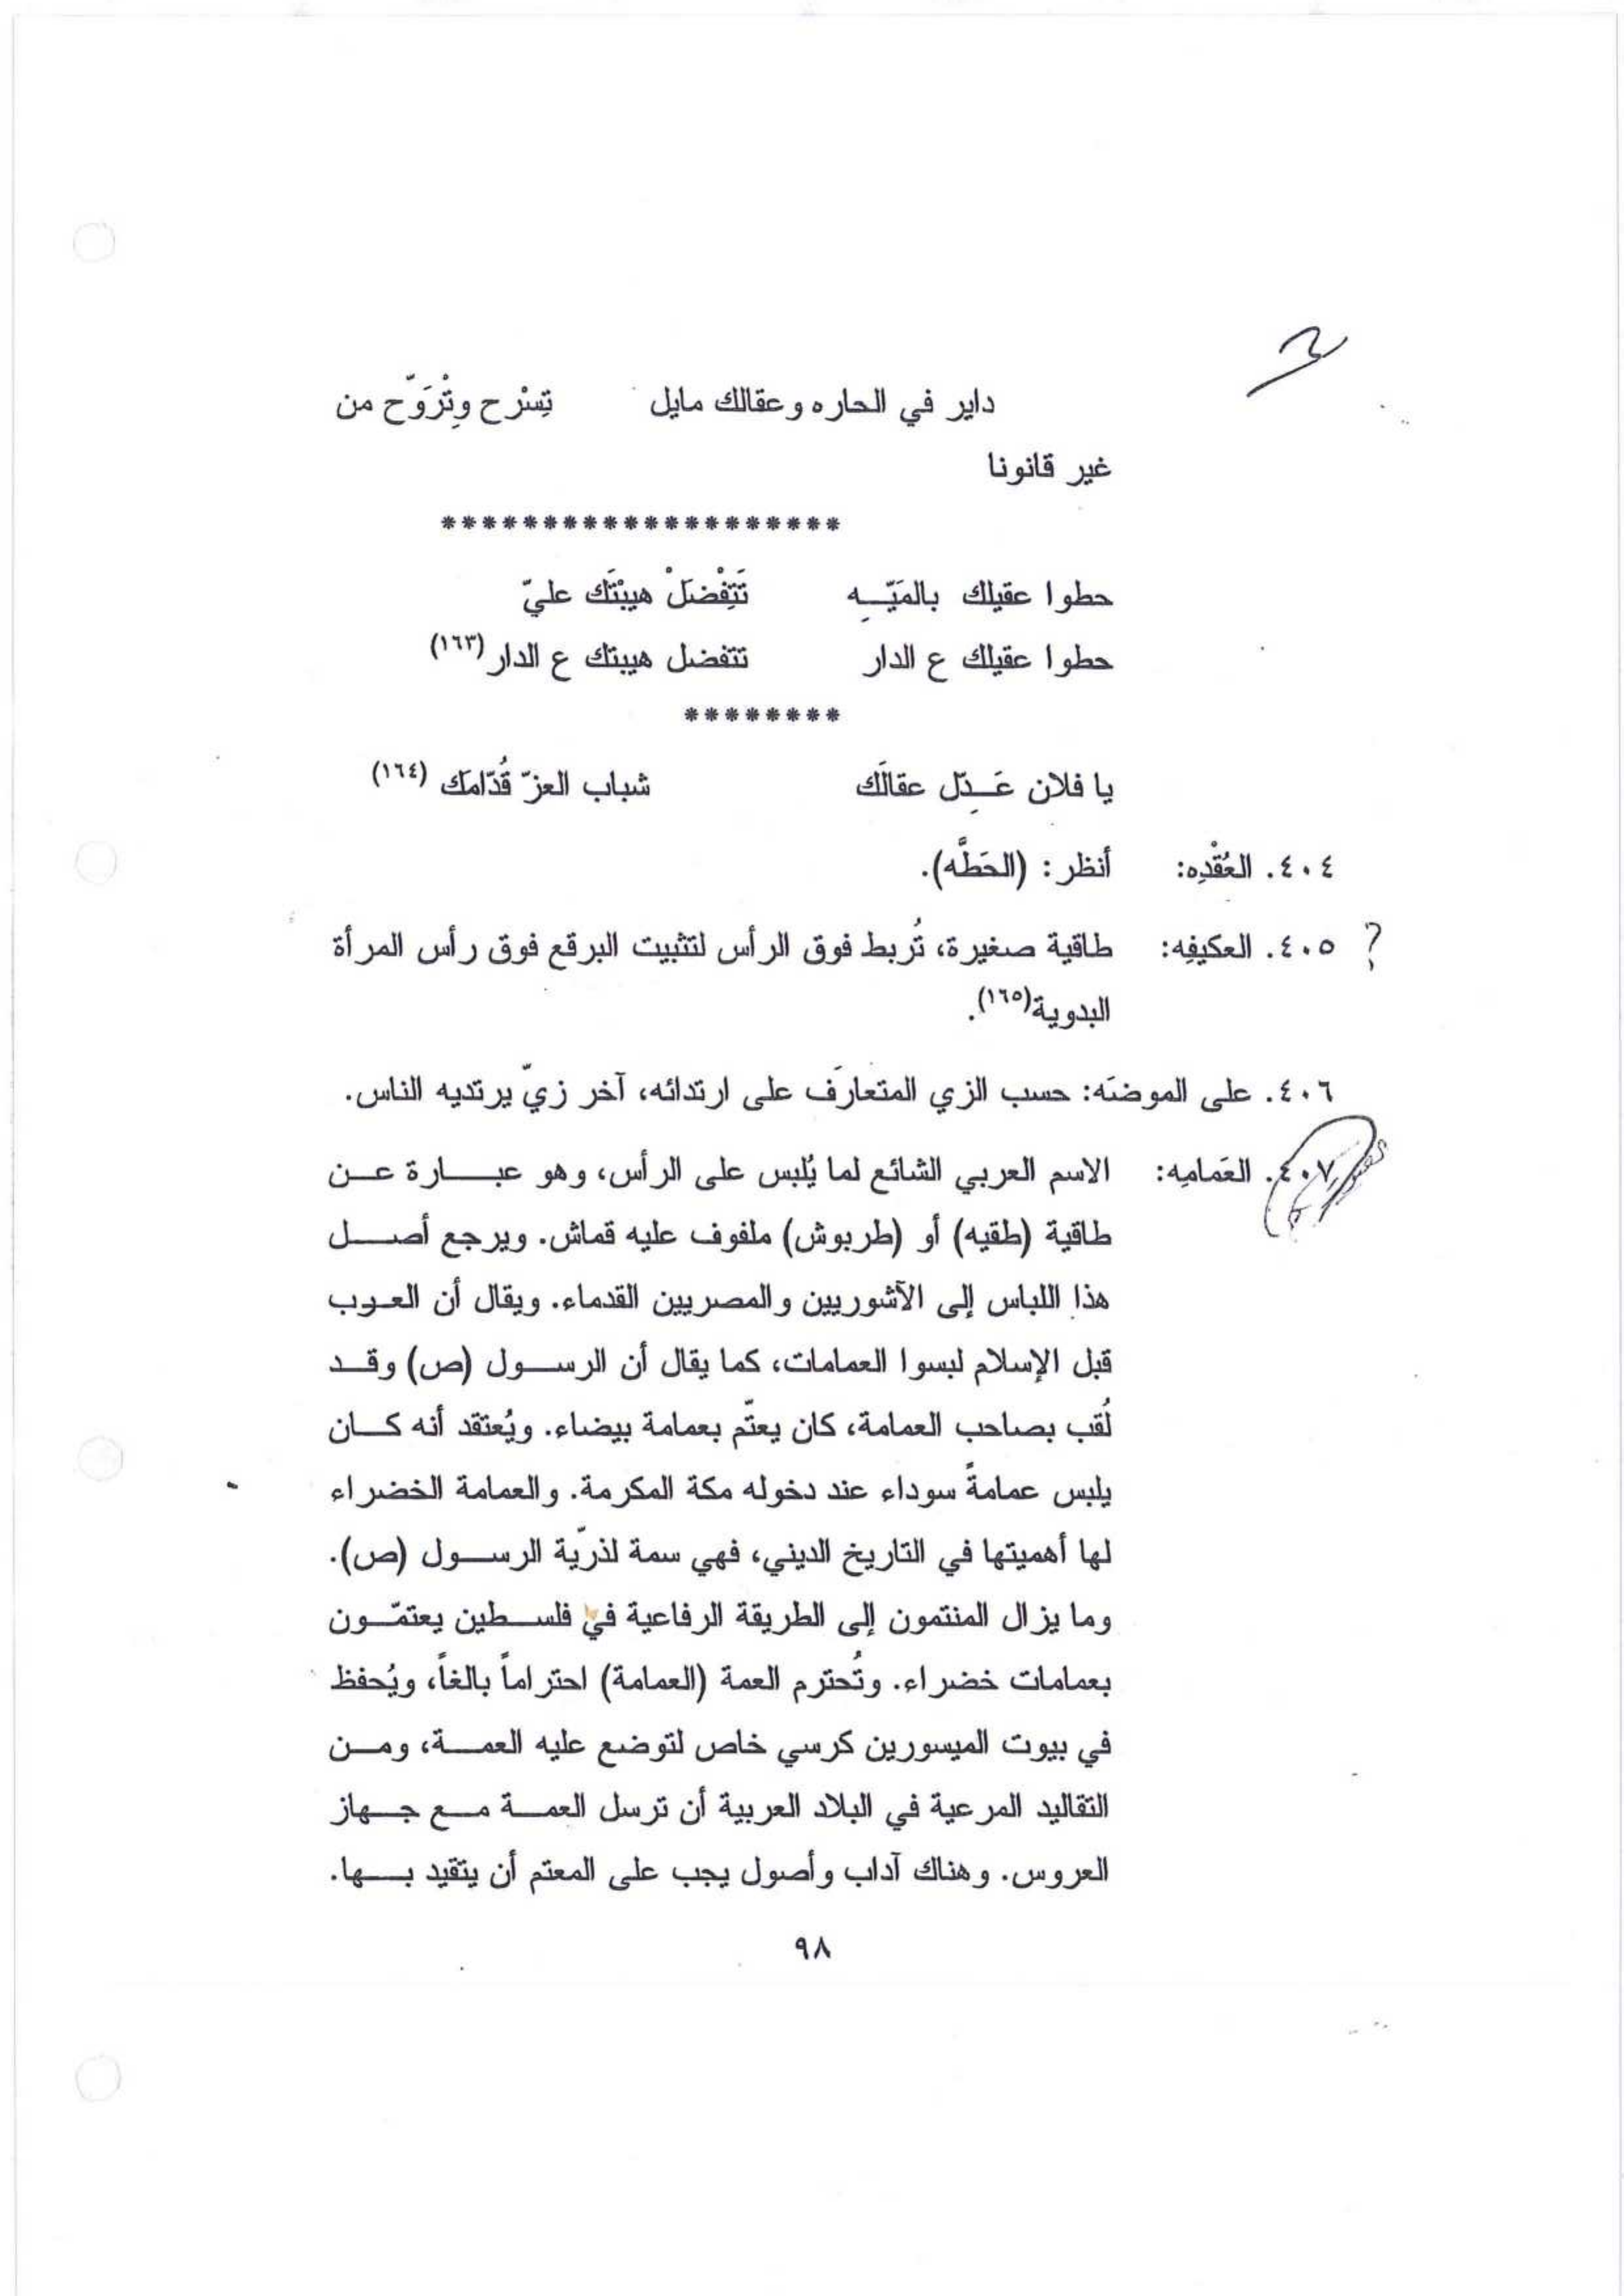 داير في الحاره وعقالك مايل تِسْرح وتِْرَوّح من
غير قانونا
********************
حطوا عقيلك بالمَيّـــِه تَتِفْضَلْ هيبْتَك عليّ
حطوا عقيلك ع الدار تتفضل هيبتك ع الدار (١٦٣)
********
يا فلان عَـــدِّل عقالَك شباب العزّ قُدّامَك (١٦٤)
٤٠٤. العُقْدِه: أنظر : (الحَطَّه).
؟ ٤٠٥. العكيفِه: طاقية صغيرة، تُربط فوق الرأس لتثبيت البرقع فوق رأس المرأة
البدوية(١٦٥).
٤٠٦. على الموضَه: حسب الزي المتعارَف على ارتدائه، آخر زيّ يرتديه الناس.
٤٠٧. العَمامِه: الاسم العربي الشائع لما يُلبس على الرأس، وهو عبـــــارة عـــن
طاقية (طقيه) أو (طربوش) ملفوف عليه قماش. ويرجع أصـــــل
هذا اللباس إلى الآشوريين والمصريين القدماء. ويقال أن العــرب
قبل الإسلام لبسوا العمامات، كما يقال أن الرســــول (ص) وقـــد
لُقب بصاحب العمامة، كان يعتّم بعمامة بيضاء. ويُعتقد أنه كـــان
يلبس عمامةً سوداء عند دخوله مكة المكرمة. والعمامة الخضراء
لها أهميتها في التاريخ الديني، فهي سمة لذرّية الرســـول (ص).
وما يزال المنتمون إلى الطريقة الرفاعية في فلســطين يعتمّــون
بعمامات خضراء. وتُحترم العمة (العمامة) احتراماً بالغاً، ويُحفظ
في بيوت الميسورين كرسي خاص لتوضع عليه العمـــة، ومـــن
التقاليد المرعية في البلاد العربية أن ترسل العمـــة مـــع جـــهاز
العروس. وهناك آداب وأصول يجب على المعتم أن يتقيد بـــها.
٩٨